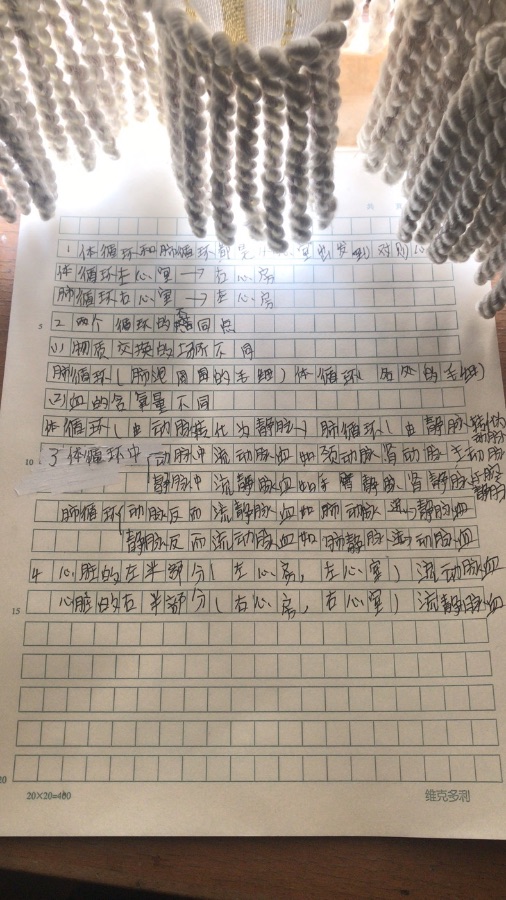 1 体循环和肺循环都是
体循环左心室→右心房
肺循环右心室→左心房
5
2 两个循环的不同点
(1)物质交换的场所不同
肺循环(肺泡周围的毛细)体循环(各处的毛细)
(2)血的含氧量不同
体循环(由动脉转化为静脉)肺循环(由静脉转化动脉)
10
3 体循环中 动脉中流动脉血如颈动脉肾动脉手动脉
静脉中流静脉血如 静脉肾静脉 静脉
肺循环 动脉反而流静脉血如肺动脉 静脉血
静脉反而流动脉血如肺静脉 动脉血
4 心脏的左半部分(左心房,左心室)流动脉血
15
心脏的右半部分(右心房,右心室)流静脉血
20
20×20=400
维克多利